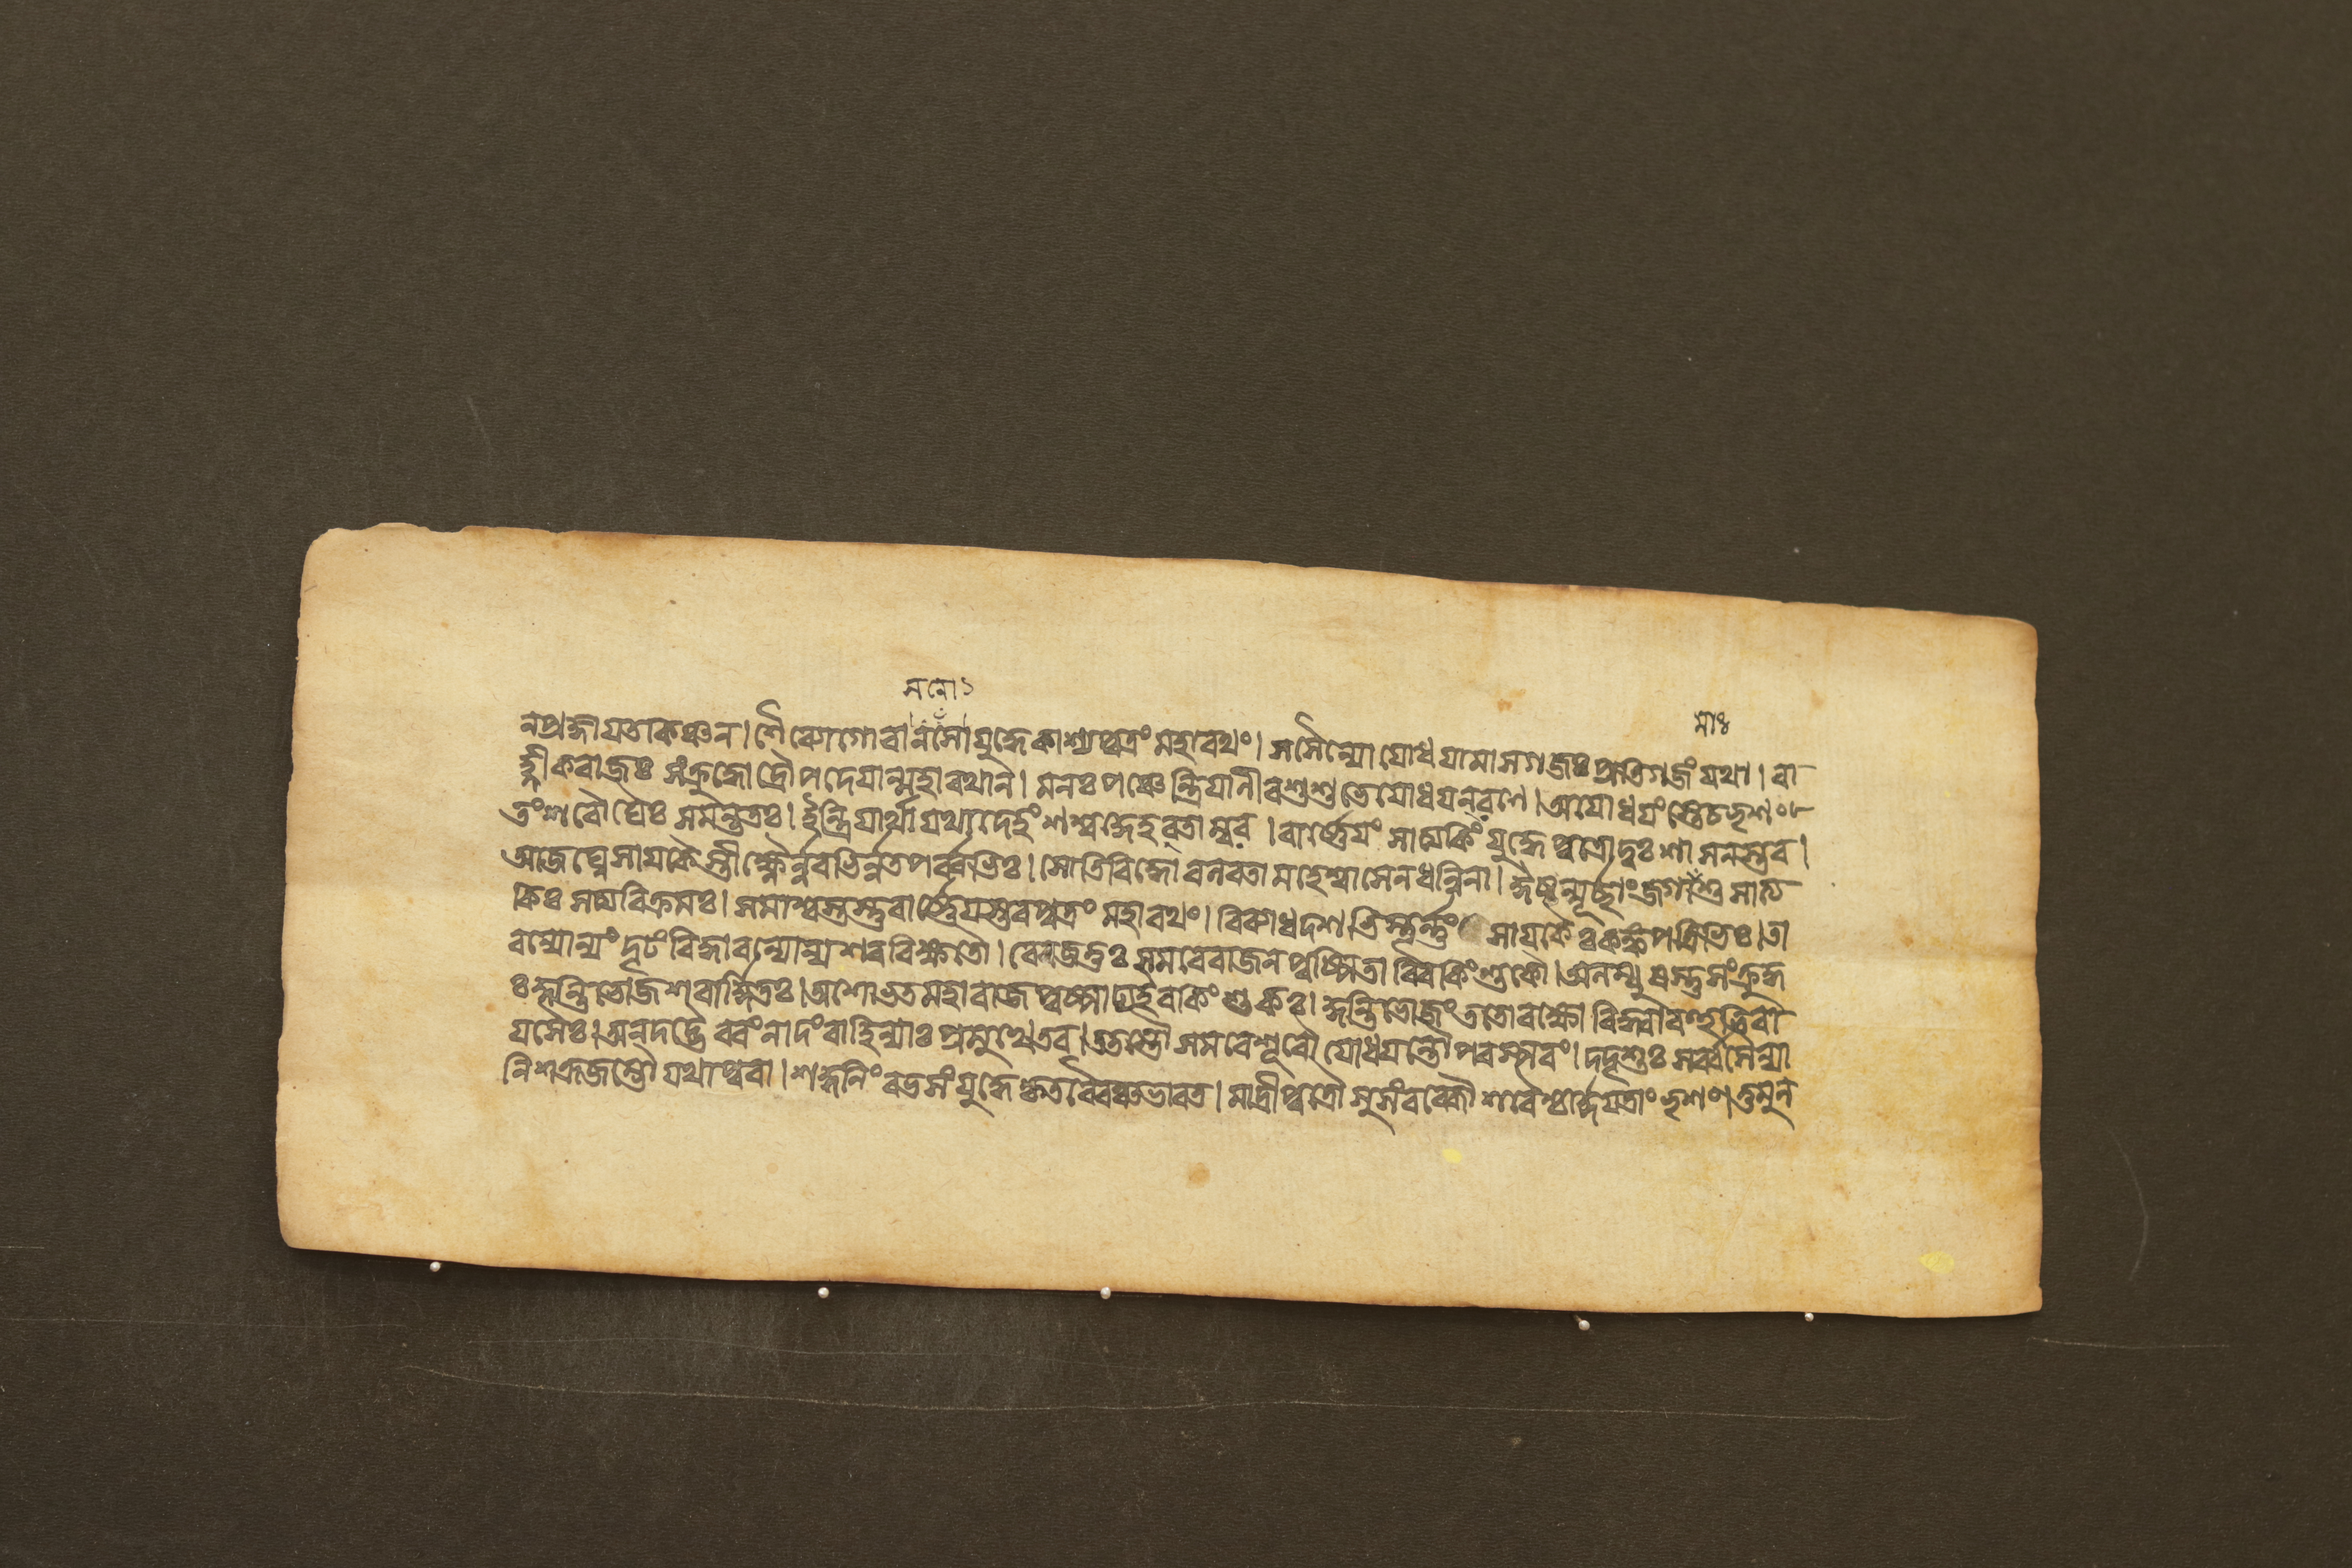 সনো
মাঃ
নপ্রাজ্ঞাযতকশ্চন। শৈব্যোগোবাসনোযুদ্ধেকাশ্যপুত্রং মহারথং। সসৈন্যো যোধযামাসগজঃপ্রতিগজং যথা। বা
হ্লীকরাজঃ সংক্রুদ্ধো দ্রৌপদেযান্মহারথান্। মনঃ পঞ্চেন্দ্রিযানীবশুশুভেযোধযন্রণে। অযোধযংস্তেচভৃশং
তংশরৌঘৈঃ সমন্ততঃ। ইন্দ্রিযার্থাযথাদেহং শশ্বদ্দেহভৃতাম্বর। বার্ষ্ণেযং সাত্যকিং যুদ্ধেপুত্রোদুঃশাসনস্তব।
আজঘ্নেসাযকৈস্তীক্ষ্ণৈর্নবভির্নতপর্ব্বভিঃ। সোতিবিদ্ধো বলবতা মহেষ্বাসেনধন্বিনা। ঈষন্মূর্চ্ছাংজগামাশুসাত্য
কিঃ সত্যবিক্রমঃ। সমাশ্বস্তস্তুবার্ষ্ণেযস্তবপুত্রং মহারথং। বিব্যাধদশভিস্তূর্ণং সাযকৈঃকঙ্কপত্রিভিঃ। তা
বন্যোন্যং দৃঢং বিদ্ধাবন্যোন্যশরবিক্ষতৌ। রেজতুঃ সমরেরাজন্ পুষ্পিতাবিবকিংশুকৌ। অলম্বুষস্তুসংক্রুদ্ধ
ঃ কুন্তিভোজশরার্দ্দিতঃ। অশোভতমহারাজপুষ্পাঢ্যইবকিংশুকঃ। কুন্তিভোজং ততোরক্ষো বিদ্ধ্বাবহুভিরা
যসৈঃ। অনদদ্ভৈরবংনাদং বাহিন্যাঃ প্রমুখেতব। ততস্তৌ সমরেশূরৌ যোধযন্তৌপরস্পরং। দদৃশুঃ সর্ব্বসৈন্যা
নিশক্রজম্ভৌ যথাপুরা। শকুনিং রভসংযুদ্ধেকৃতবৈরঞ্চভারত। মাদ্রীপুত্রৌ সুসংরব্ধৌ শরৈশ্চার্দ্দযতাংভৃশং। তুমুল